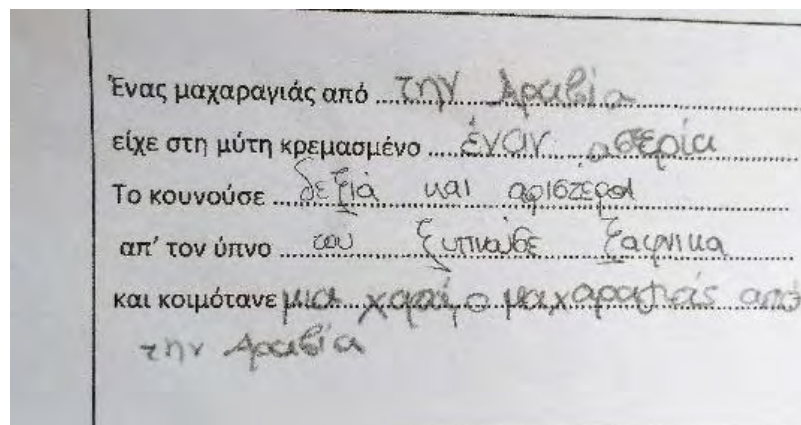 Ένας μαχαραγιάς από την Αραβία
είχε στη μύτη κρεμασμένο έναν αστερία
Το κουνούσε δεξιά και αριστερά
απ' τον ύπνο του ξυπνούσε ξαφνικα
και κοιμότανε μια χαρά, ο μαχαραγιάς από
την Αραβία